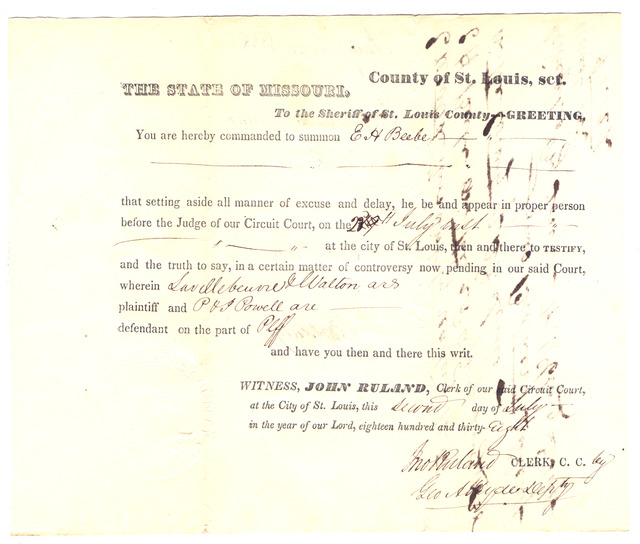 County of St. Louis, sct.
THE STATE OF MISSOURI,
To the Sheriff of St. Louis County—GREETING,
You are hereby commanded to summon E H Beebe
that setting aside all manner of excuse and delay, he be and appear in proper person
before the Judge of our Circuit Court, on the July inst
at the city of St. Louis, then and there to TESTIFY,
and the truth to say, in a certain matter of controversy now pending in our said Court,
wherein Lavellebeuvre & Walton are
plaintiff and P & J Powell are
defendant on the part of Plff
and have you then and there this writ.
WITNESS, JOHN RULAND, Clerk of our said Circuit Court,
at the City of St. Louis, this second day of July
in the year of our Lord, eighteen hundred and thirty-Eight
Jno Ruland CLERK, C. C. by
Geo A Hyde Depty